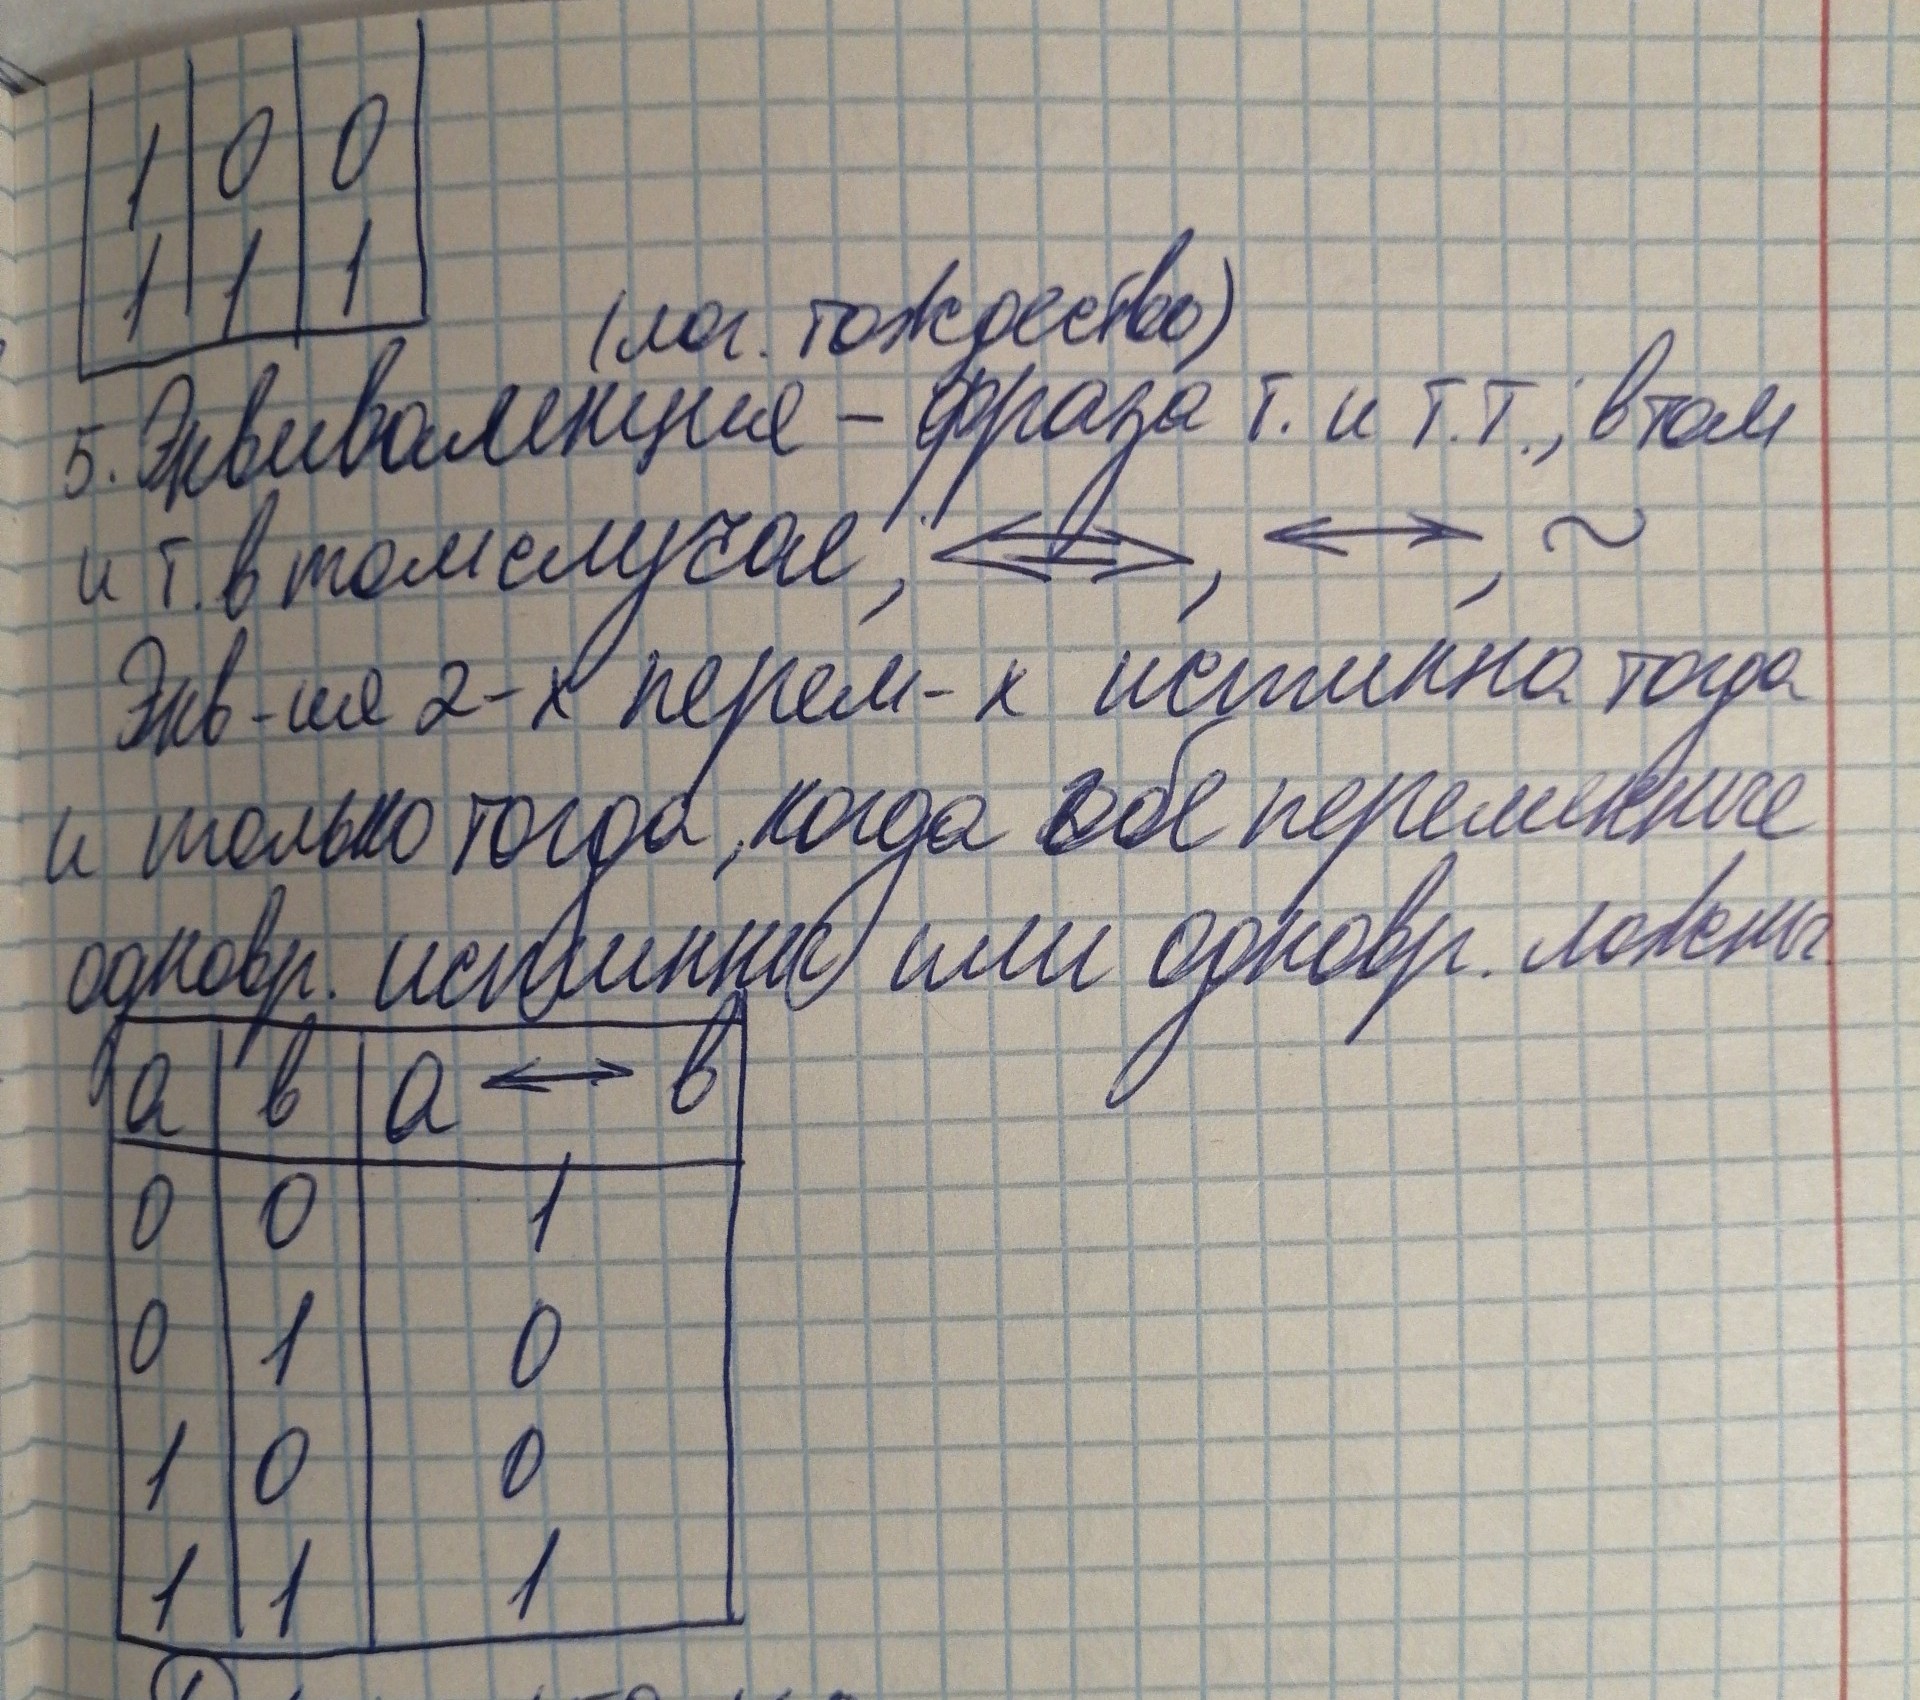 1 0 0
1 1 1
(лог. тождество)
5. Эквиваленция – фраза т. и т.т.; в том
и т. в том случае, ⇔, ↔, ~
Экв-ия 2-х перем-х истинна тогда
и только тогда, когда обе переменные
одновр. истинны или одновр. ложны.
а в а ↔ в
0 0 1
0 1 0
1 0 0
1 1 1